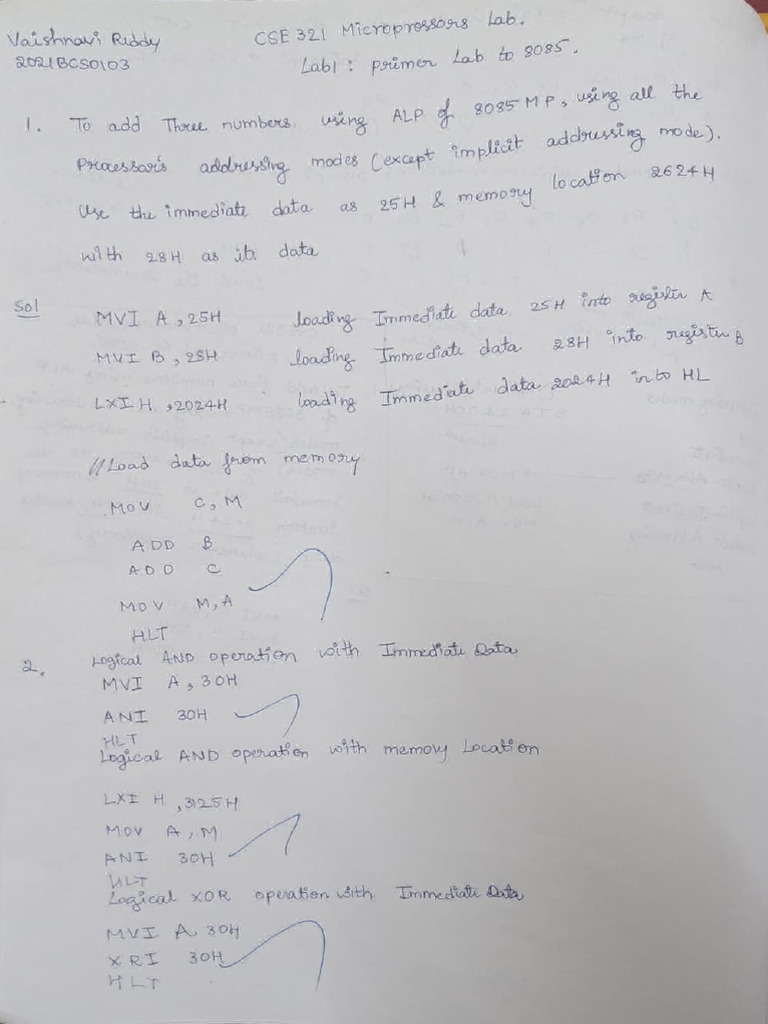 Vaishnavi Reddy
CSE 321 Microprossors Lab.
2021BCS0103
Lab1 : primer Lab to 8085.
1. To add Three numbers using ALP of 8085 MP, using all the
Processor's addressing modes (except implicit addressing mode).
Use the immediate data as 25H & memory location 2624H
with 28H as its data
Sol
MVI A, 25H loading Immediate data 25H into register A
MVI B, 28H loading Immediate data 28H into register B
LXI H, 2024H loading Immediate data 2024H into HL
//Load data from memory
MOV C, M
ADD B
ADD C
MOV M, A
HLT
2. Logical AND operation with Immediate Data
MVI A, 30H
ANI 30H
HLT
Logical AND operation with memory Location
LXI H, 3125H
MOV A, M
ANI 30H
HLT
Logical XOR operation with Immediate Data
MVI A 30H
XRI 30H
HLT